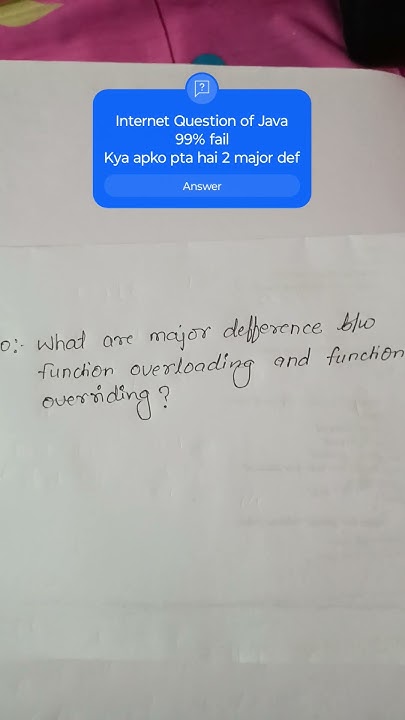 Internet Question of Java
99% fail
Kya apko pta hai 2 major def
Answer
Q:- What are major defference b/w
function overloading and function
overriding?